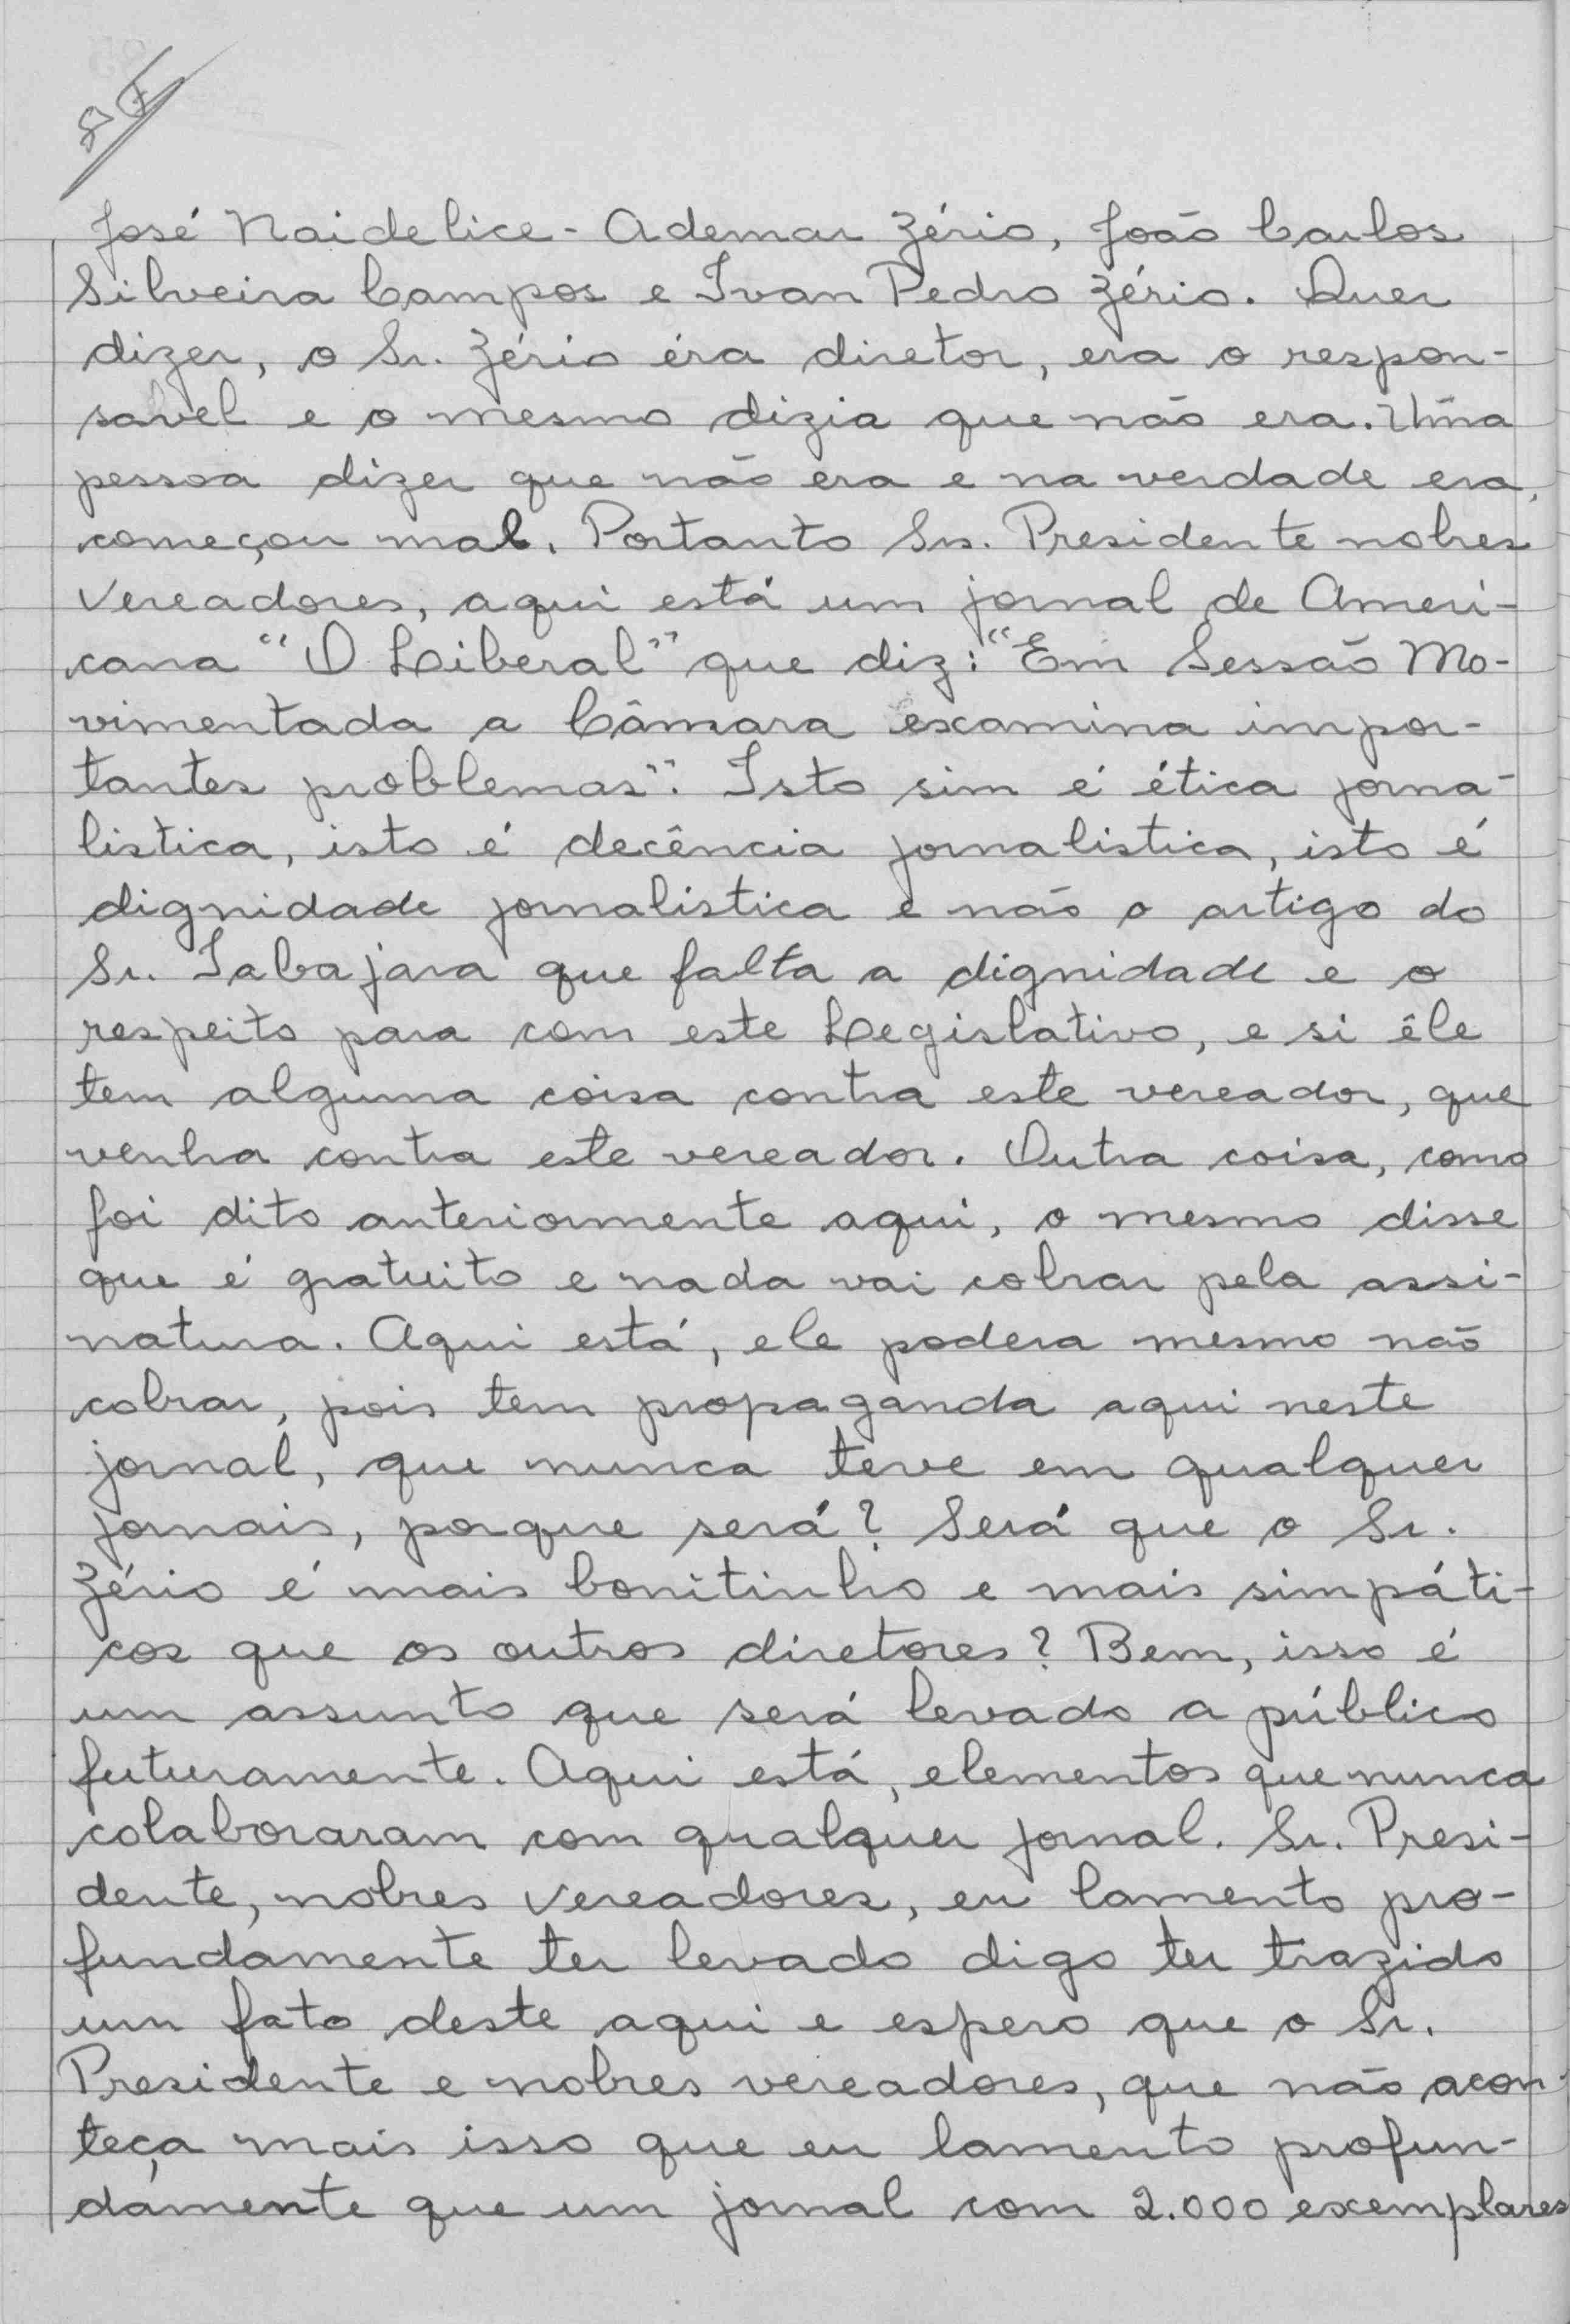 José Naidelice - Ademar Zério, João Carlos
Silveira Campos e Ivan Pedro Zério. Quer
dizer, o Sr. Zério éra diretor, era o respon-
savel e o mesmo dizia que não era. Uma
pessoa dizer que não era e na verdade era,
começou mal. Portanto Sr. Presidente nobres
Vereadores, aqui está um jornal de Ameri-
cana "O Liberal" que diz: "Em Sessão Mo-
vimentada a Câmara examina impor-
tantes problemas". Isto sim é ética jorna-
listica, isto é decência jornalistica, isto é
dignidade jornalistica e não o artigo do
Sr. Tabajara que falta a dignidade e o
respeito para com este Legislativo, e si êle
tem alguma coisa contra este vereador, que
venha contra este vereador. Outra coisa, como
foi dito anteriormente aqui, o mesmo disse
que é gratuito e nada vai cobrar pela assi-
natura. Aqui está, ele podera mesmo não
cobrar, pois tem propaganda aqui neste
jornal, que nunca teve em qualquer
jornais, porque será? Será que o Sr.
Zério é mais bonitinho e mais simpáti-
cos que os outros diretores? Bem, isso é
um assunto que será levado a público
futuramente. Aqui está, elementos que nunca
colaboraram com qualquer jornal. Sr. Presi-
dente, nobres Vereadores, eu lamento pro-
fundamente ter levado digo ter trazido
um fato deste aqui e espero que o Sr.
Presidente e nobres vereadores, que não acon-
teça mais isso que eu lamento profun-
damente que um jornal com 2.000 exemplares